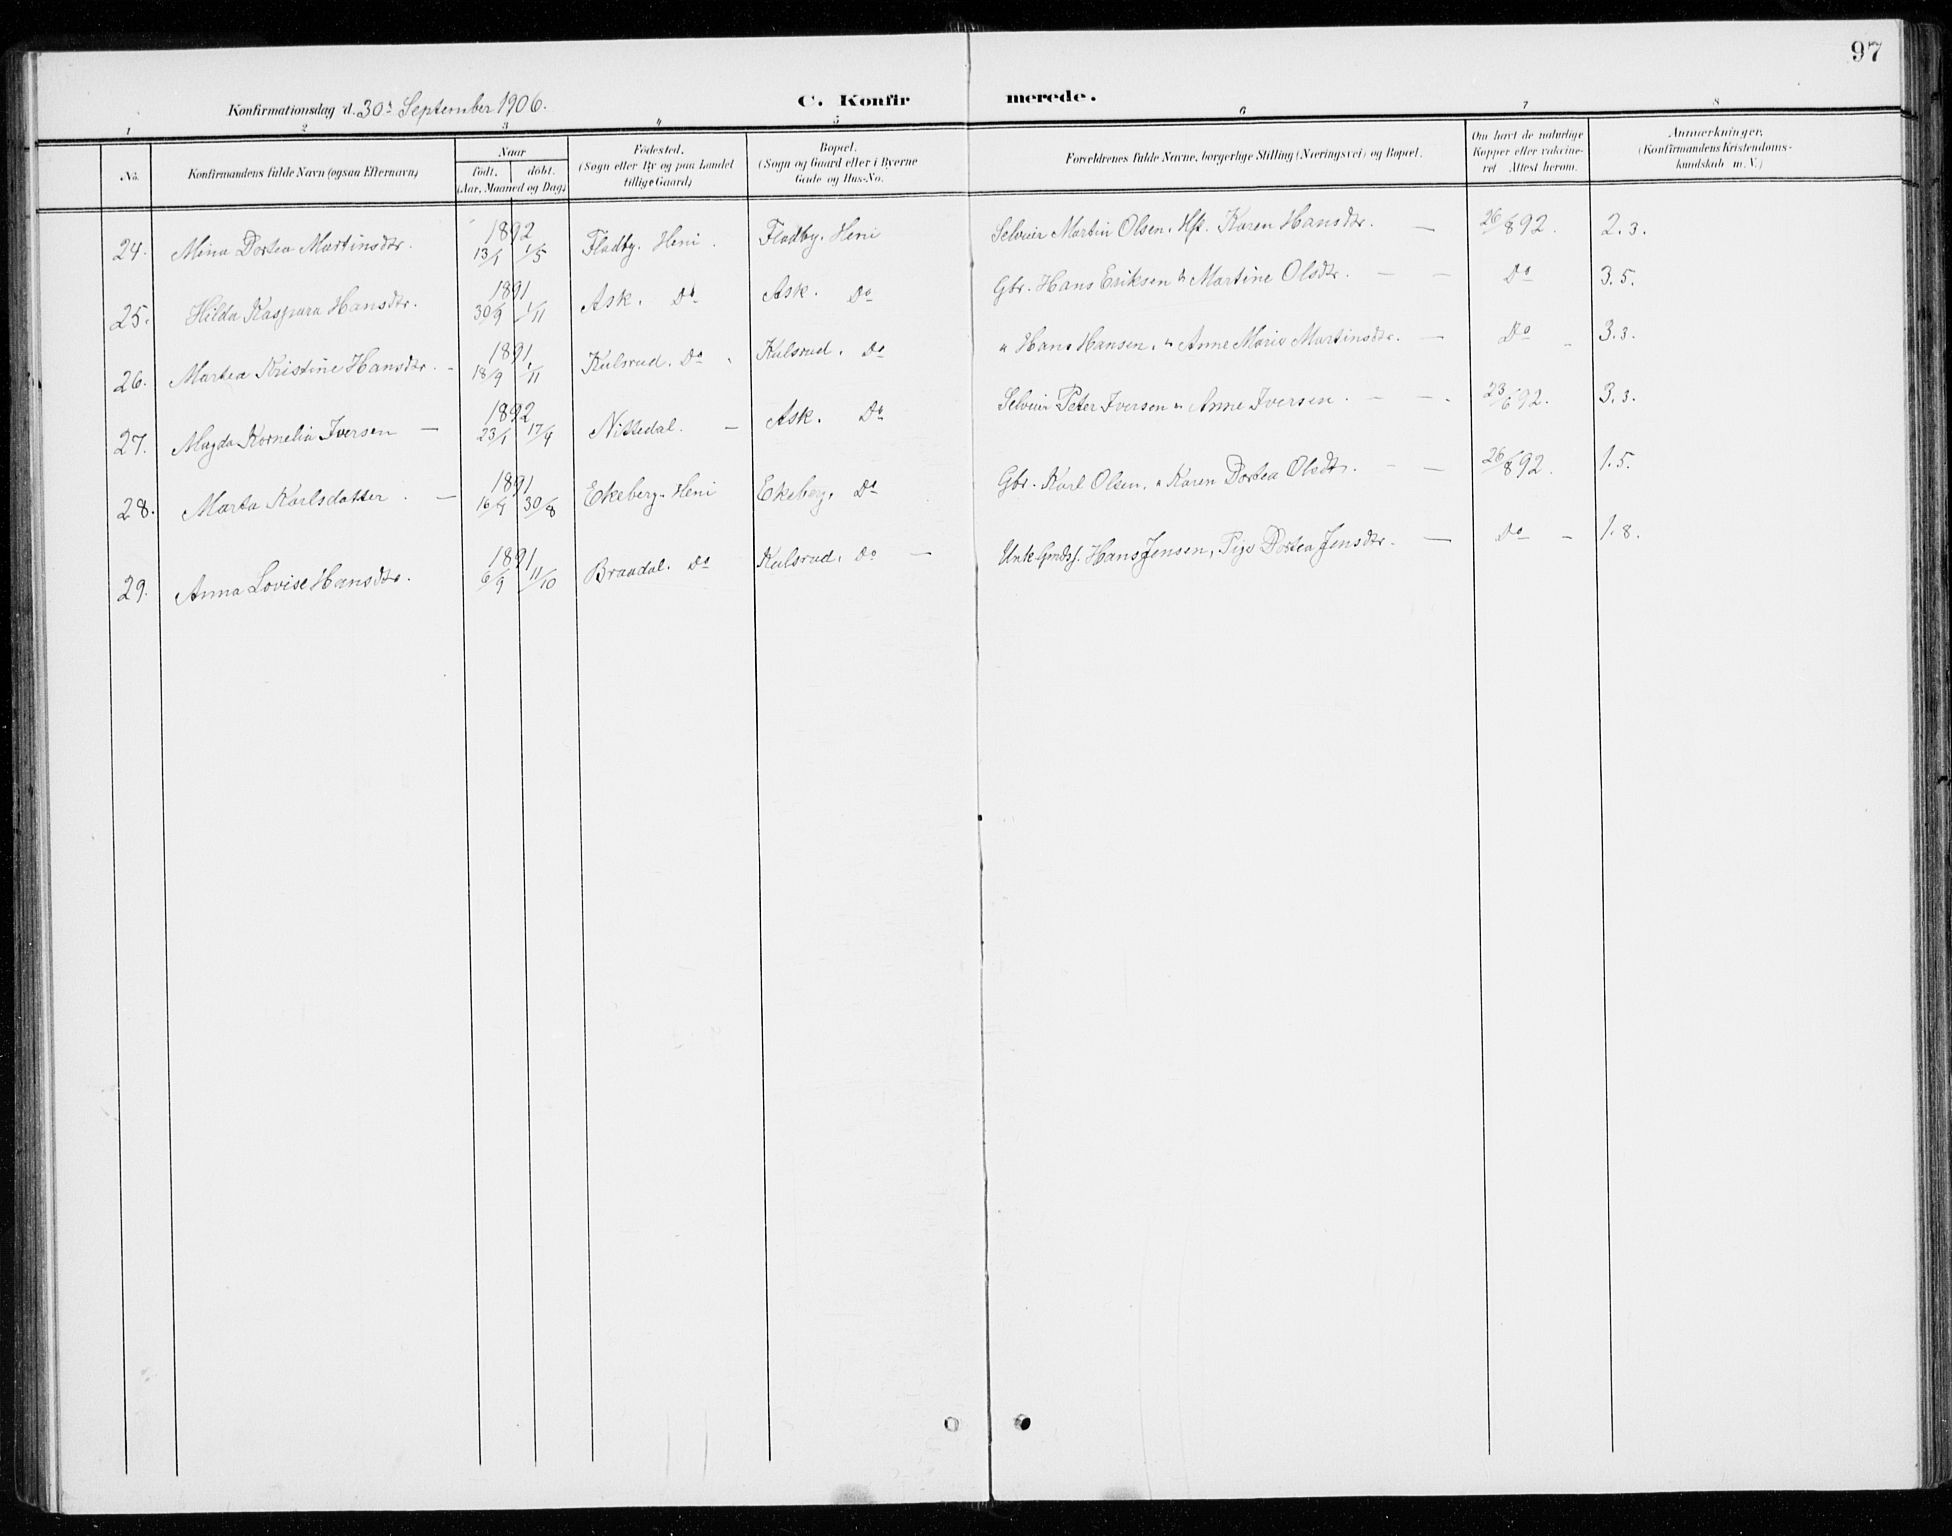 97
Konfirmationsdag d. 30d September 1906. C. Konfirmerede.
1 2 3 4 5 6 7 8
No. Konfirmandens fulde Navn (ogsaa Efternavn) Naar født. døbt. (Aar, Maaned og Dag) Fødested. (Sogn eller By og paa Landet tillige Gaard) Bopæl. (Sogn og Gaard eller i Byerne Gade og Hus-No. Forældrenes fulde Navne, borgerlige Stilling (Næringsvei) og Bopæl. Om havt de naturlige Kopper eller vakcineret Attest herom. Anmærkninger. (Konfirmandens Kristendomskundskab m. V.)
24. Mina Dortea Martinsdtr. 1892 13/1 1/5 Fladby. Heni. Fladby. Heni Selveier Martin Olsen. Hst. Karen Hansdtr. — 26/8 92. 2.3.
25. Hilda Kaspara Hansdtr. 1891 30/9 1/11 Ask. Do Ask. Do Gbr. Hans Eriksen " Martine Olsdtr. — — Do 3.5.
26. Martea Kristine Hansdtr. - 1891 18/9 1/11 Kulsrud. Do. Kulsrud. Do " Hans Hansen. " Anne Marie Martinsdtr. — Do - 3.3.
27. Magda Kornelia Iversen — 1892 23/1 17/4 Nittedal. — Ask. Do Selveier Peter Iversen " Anne Iversen. — -. 23/6 92. 3.3.
28. Marta Karlsdatter. — 1891 16/7 30/8 Ekeberg. Heni Ekeberg. Do Gbr. Karl Olsen. " Karen Dortea Olsdtr. - — 26/8 92. 1.5.
29. Anna Lovise Hansdtr. 1891 6/9 11/10 Braadal. Do Kulsrud. Do — Hans Jensen, Pige Dortea Jensdtr. — Do - 1.8.